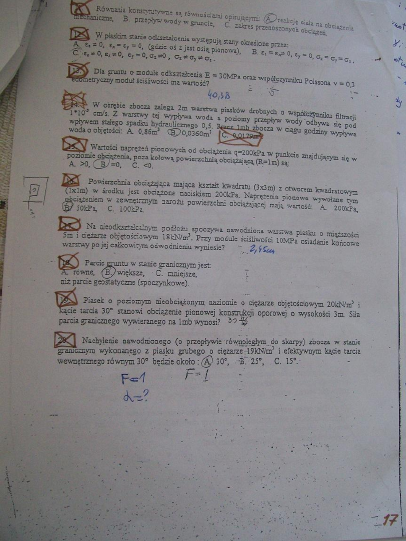 Równania konstytutywne są równościami opisującymi: A. reakcję ciała na obciążenia
mechaniczne, B. przepływ wody w gruncie, C. zakres przenoszonych obciążeń.
W płaskim stanie odkształcenia występują stany określone przez:
Dla gruntu o module odkształcenia E = 30MPa oraz współczynniku Poissona v = 0,3
edometryczny moduł ściśliwości ma wartość?
W obrębie zbocza zalega 2m warstwa piasków drobnych o współczynniku filtracji
cm/s. Z warstwy tej wypływa woda z poziomy przepływ wody odbywa się pod
wpływem stałego spadku hydraulicznego 0,5. Przez 1mb zbocza w ciągu godziny wypływa
woda o objętości: A. 0,86m³ B. 0,0360m³
Wartości naprężeń pionowych od obciążenia q=200kPa w punkcie znajdującym się w
poziomie obciążenia, poza kołową powierzchnią obciążającą (R=1m) są:
A. >0, B. =0, C. <0.
Powierzchnia obciążająca mająca kształt kwadratu (3x3m) z otworem kwadratowym
(1x1m) w środku jest obciążone naciskiem 200kPa. Naprężenia pionowe wywołane tym
obciążeniem w zewnętrznym narożu powierzchni obciążającej mają wartość: A. 200kPa,
B. 50kPa, C. 100kPa.
Na nieodkształcalnym podłożu spoczywa nawodniona warstwa piasku o miąższości
5m i ciężarze objętościowym 18kN/m³. Przy module ściśliwości 10MPa osiadanie końcowe
warstwy po jej całkowitym odwodnieniu wyniesie?
Parcie gruntu w stanie granicznym jest:
A. równe, B. większe, C. mniejsze,
niż parcie geostatyczne (spoczynkowe).
Piasek o poziomym nieobciążonym naziomie o ciężarze objętościowym 20kN/m³ i
kącie tarcia 30° stanowi obciążenie pionowej konstrukcji oporowej o wysokości 3m. Siła
parcia granicznego wywieranego na 1mb wynosi?
Nachylenie nawodnionego (o przepływie równoległym do skarpy) zbocza w stanie
granicznym wykonanego z piasku grubego o ciężarze 19kN/m³ i efektywnym kącie tarcia
wewnętrznego równym 30° będzie około: A. 30°, B. 25°, C. 15°.
F=1 F=1
α=?
17